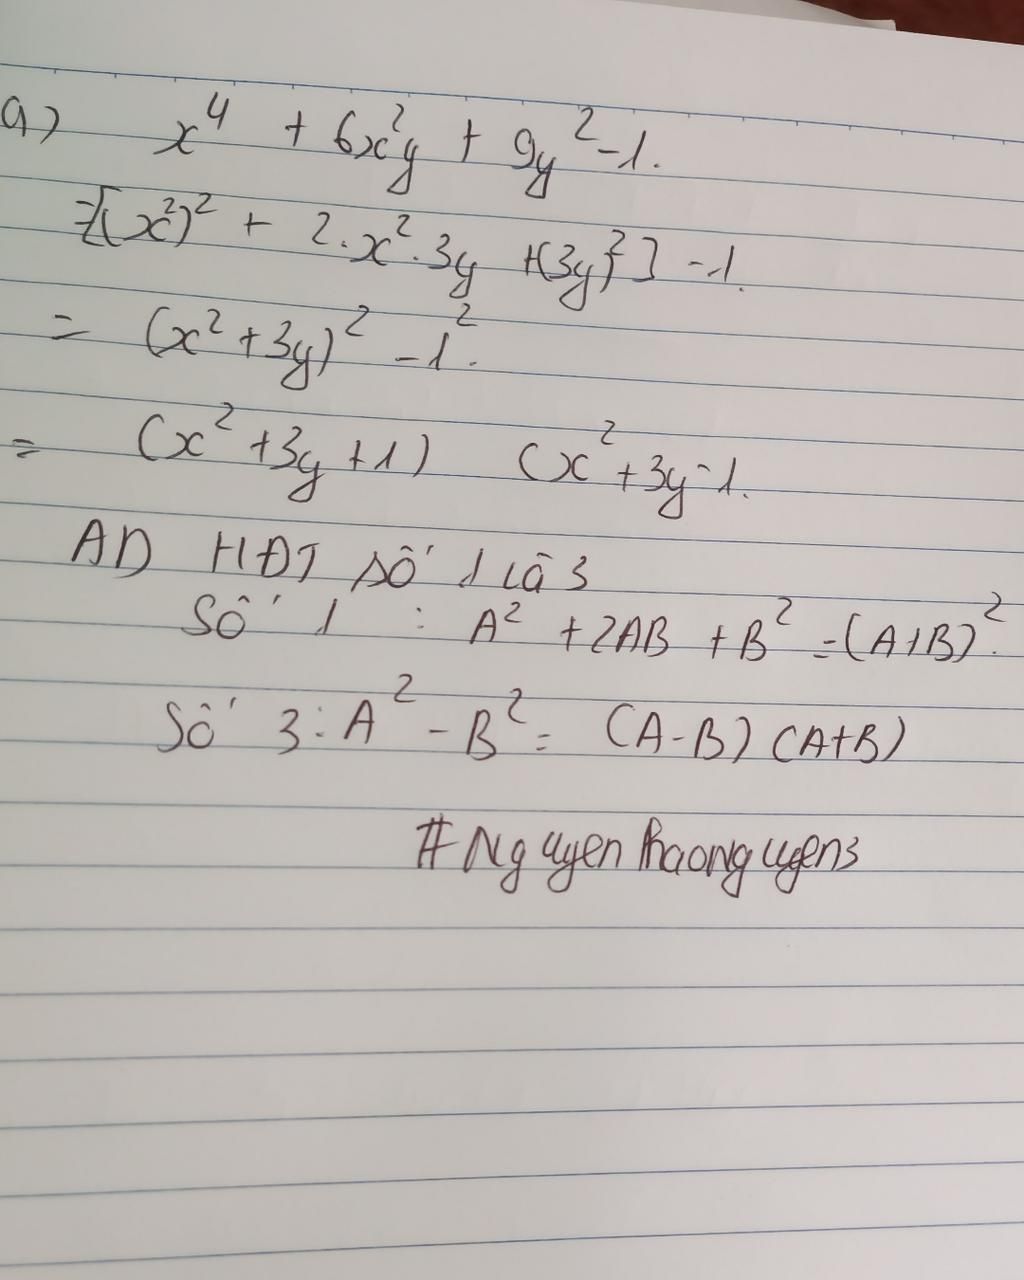 a) x⁴ + 6x²y + 9y² - 1.
= [(x²)² + 2.x².3y + (3y)²] - 1.
= (x² + 3y)² - 1².
= (x² + 3y + 1) (x² + 3y - 1.
AD HĐT số 1 và 3
Số 1 : A² + 2AB + B² = (A+B)².
Số 3 : A² - B² = (A-B) (A+B)
#Nguyen thaonguyen3